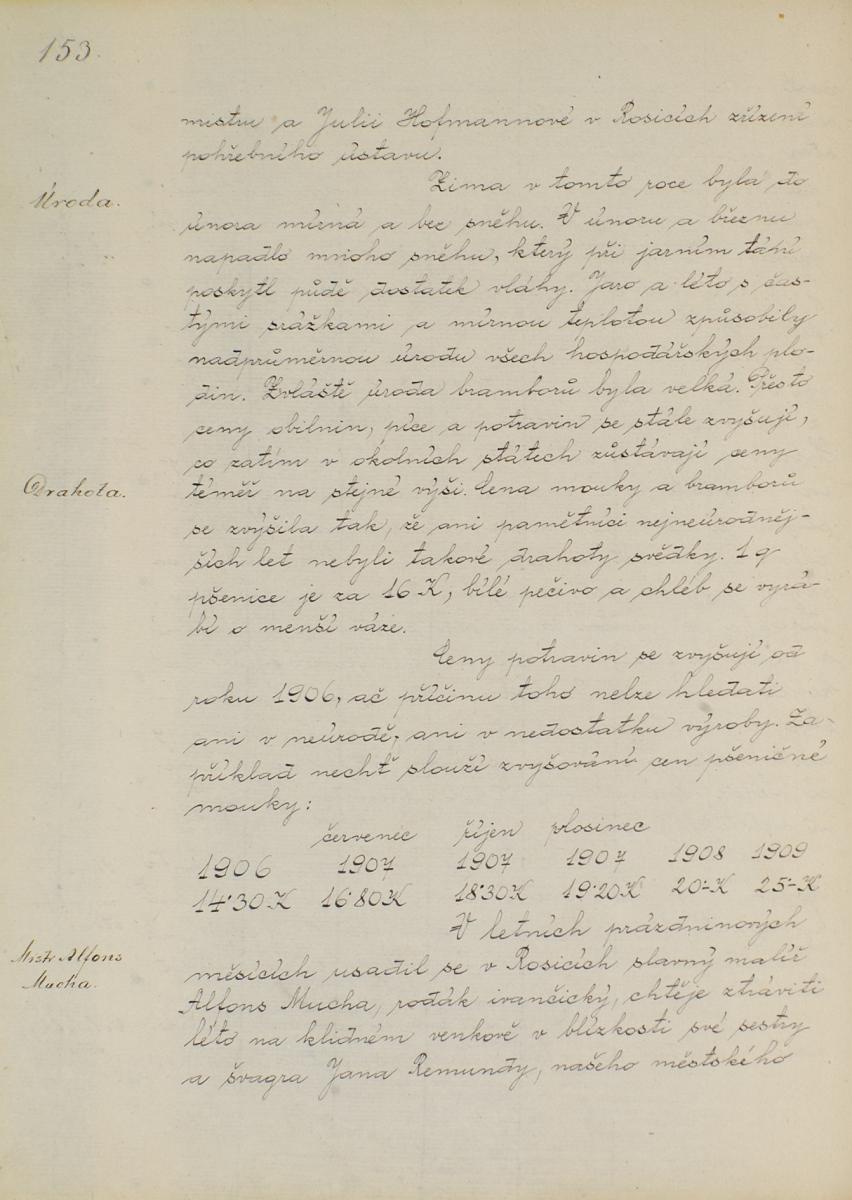 153.
mistru a Julii Hofmannové v Rosicích zřízení
pohřebního ústavu.
Úroda.
Zima v tomto roce byla do
února mírná a bez sněhu. V únoru a březnu
napadlo mnoho sněhu, který při jarním tání
poskytl půdě dostatek vláhy. Jaro a léto s čas-
tými srážkami a mírnou teplotou způsobily
nadprůměrnou úrodu všech hospodářských plo-
din. Zvláště úroda bramborů byla velká. Přesto
ceny obilnin, píce a potravin se stále zvyšují,
co zatím v okolních státech zůstávají ceny
Drahota.
téměř na stejné výši. Cena mouky a bramborů
se zvýšila tak, že ani pamětníci nejneúrodněj-
ších let nebyli takové drahoty svědky. 1 q
pšenice je za 16 K, bílé pečivo a chléb se vyrá-
bí o menší váze.
Ceny potravin se zvyšují od
roku 1906, ač příčinu toho nelze hledati
ani v neúrodě, ani v nedostatku výroby. Za
příklad nechť slouží zvyšování cen pšeničné
mouky:
červenec říjen plosinec
1906 1907 1907 1907 1908 1909
14·30 K 16·80 K 18·30 K 19·20 K 20·- K 25·- K
V letních prázdninových
Mistr Alfons
Mucha.
měsících usadil se v Rosicích slavný malíř
Alfons Mucha, rodák ivančický, chtěje ztráviti
léto na klidném venkově v blízkosti své sestry
a švagra Jana Remundy, našeho městského